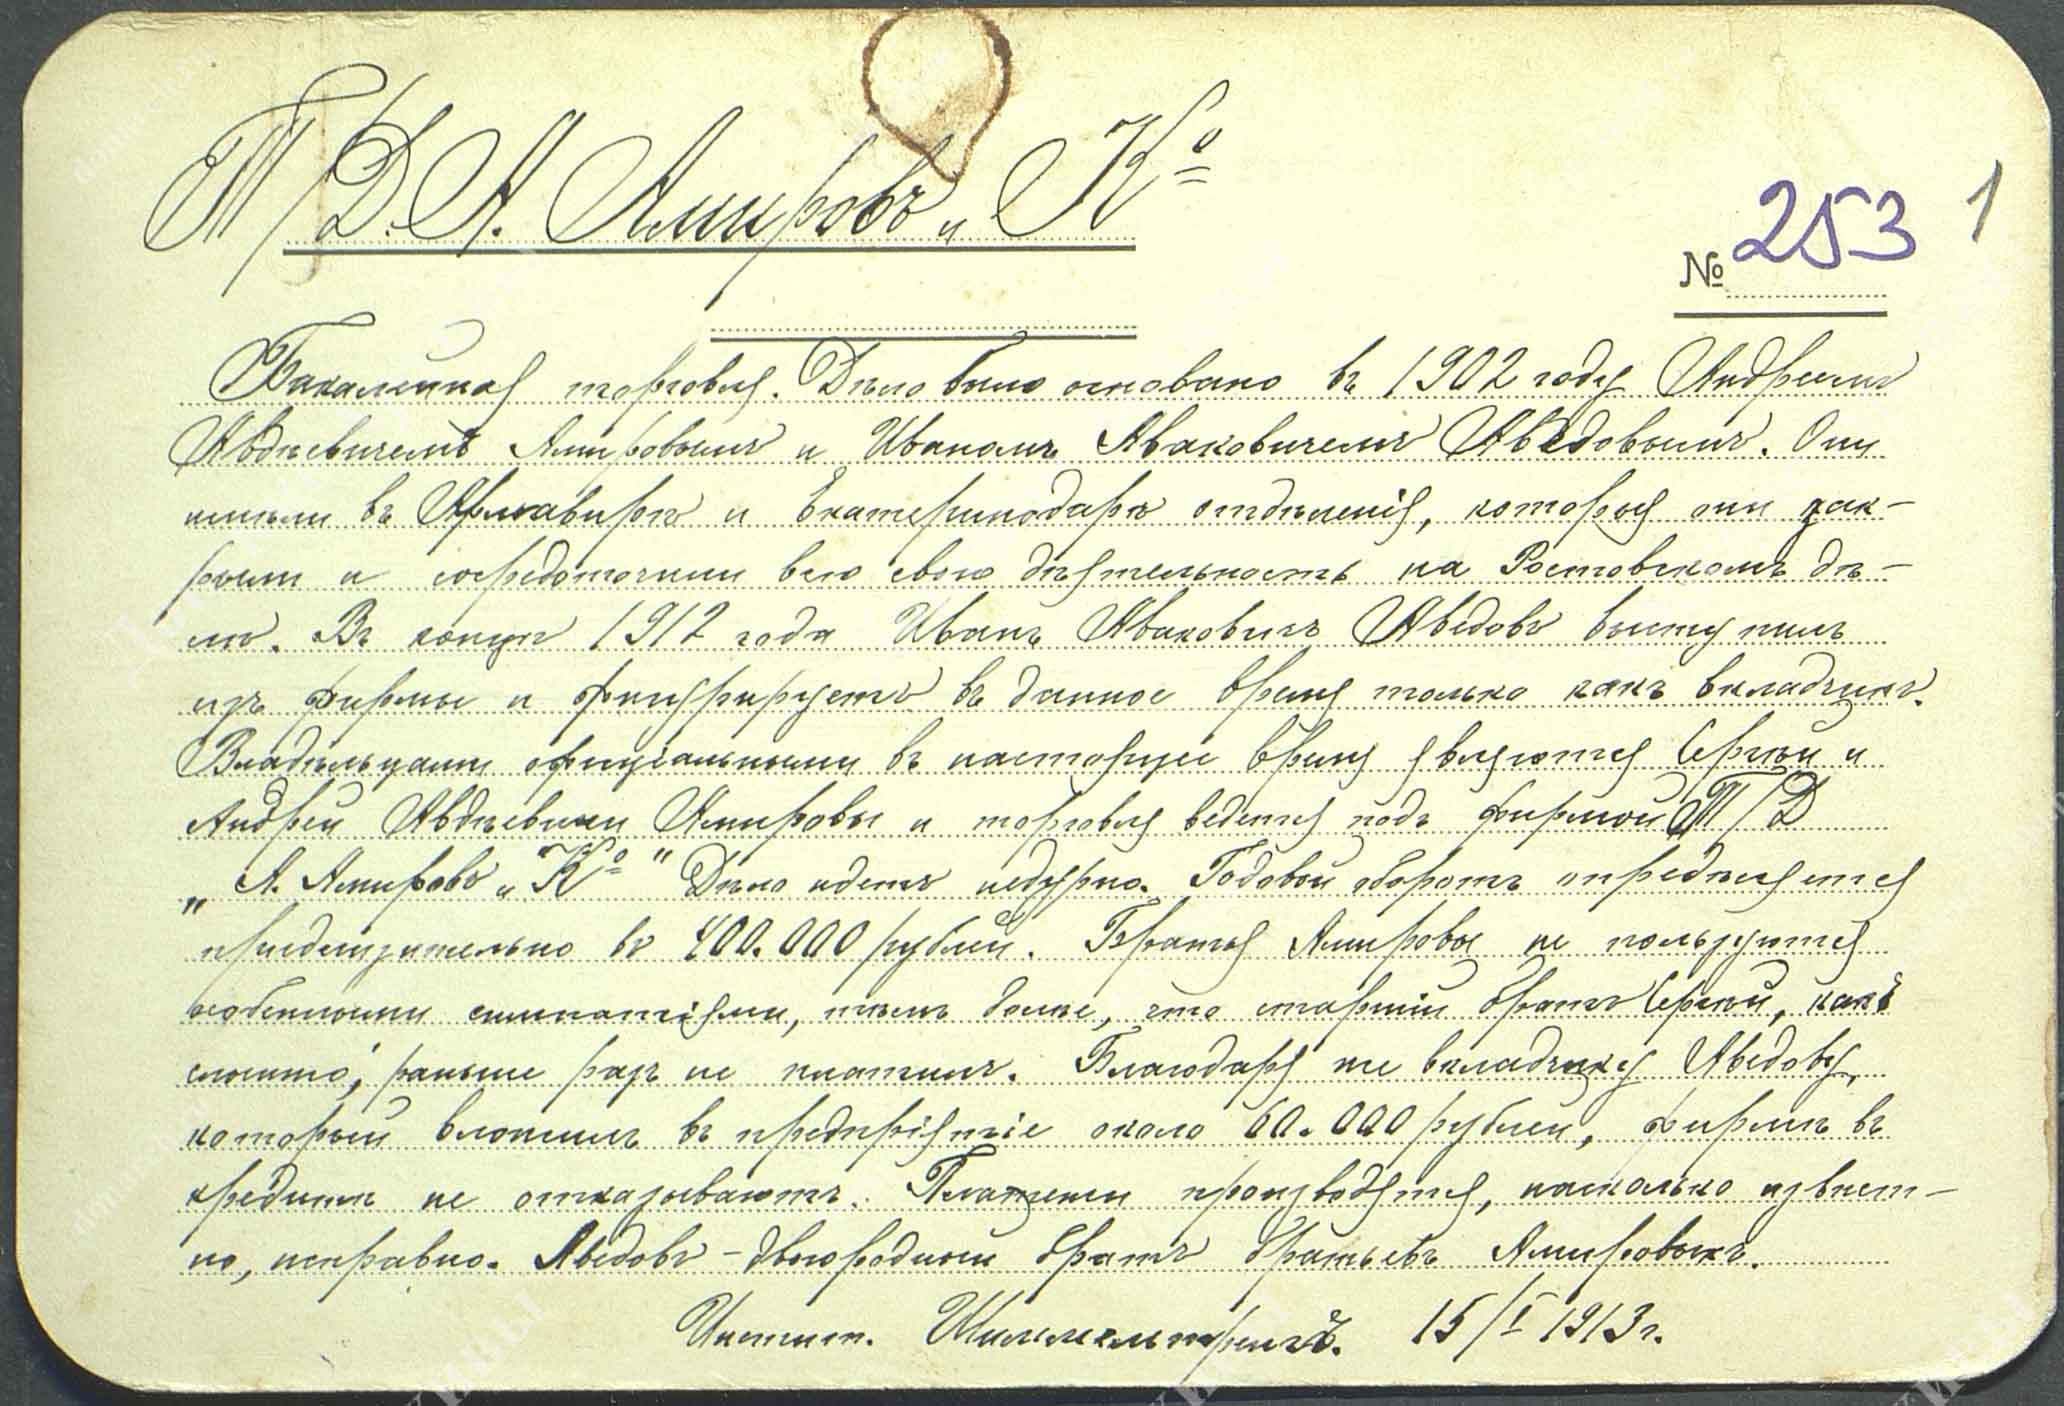 Т/Д. А. Амировъ и Ко
№ 253 1
Бакалейная торговля. Дѣло было основано въ 1902 году Андреемъ
Авдѣевичемъ Амировымъ и Иваномъ Аваковичемъ Аведовымъ. Они
имѣли въ Армавирѣ и Екатеринодарѣ отдѣленія, которыя они зак-
рыли и сосредоточили всю свою дѣятельность на Ростовскомъ дѣ-
лѣ. Въ концѣ 1912 года Иванъ Аваковичъ Аведовъ выступилъ
изъ фирмы и фигурируетъ въ данное время только какъ вкладчикъ.
Владѣльцами оффиціальными въ настоящее время являются Сергѣй и
Андрей Авдѣевичи Амировы и торговля ведется подъ фирмой „Т/Д
„А. Амировъ и Ко" Дѣло идетъ недурно. Годовой оборотъ опредѣляется
приблизительно въ 400.000 рублей. Братья Амировы не пользуются
особенными симпатіями, тѣмъ болѣе, что старшій братъ Сергѣй, какъ
слышно, раньше разъ не платилъ. Благодаря же вкладчику Аведову,
который вложилъ въ предпріятіе около 60.000 рублей, фирмѣ въ
кредитѣ не отказываютъ. Платежи производятся, насколько извѣст-
но, исправно. Аведовъ - двоюродный братъ братьевъ Амировыхъ.
15/I 1913 г.